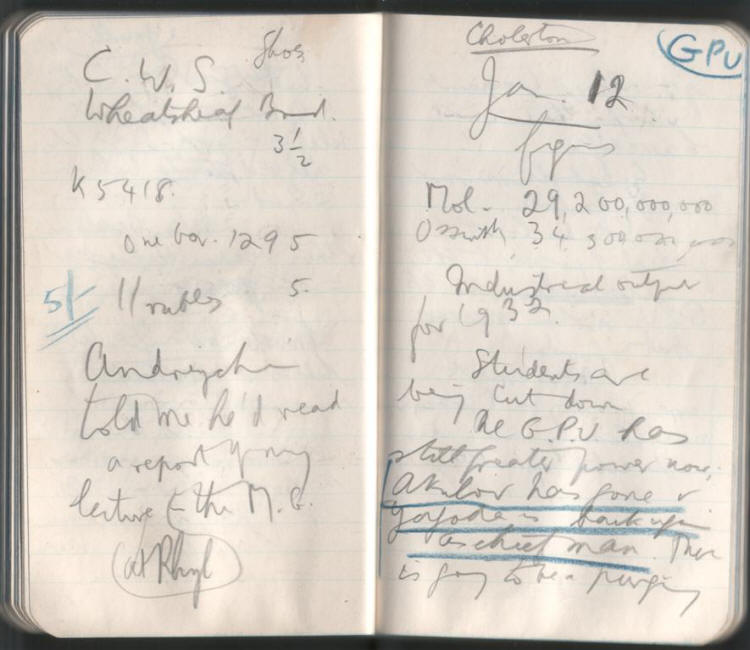 Shoes
C. W. S.
Wheatsheaf Brand.
3 1/2
K 5418.
One box. 1295
5/- 11 rubles 5.
Andreychin
told me he'd read
a report of my
lecture to the M.G.
(at Rhyl)
Cholerton
GPU
Jan 12
figures
Mol. 29,200,000,000
34,300,000,000
Industrial output
for 1932.
Students are
being cut down
The G.P.U has
still greater power now.
Akulov has gone &
Yagoda is back again
as chief man. There
is going to be a purging